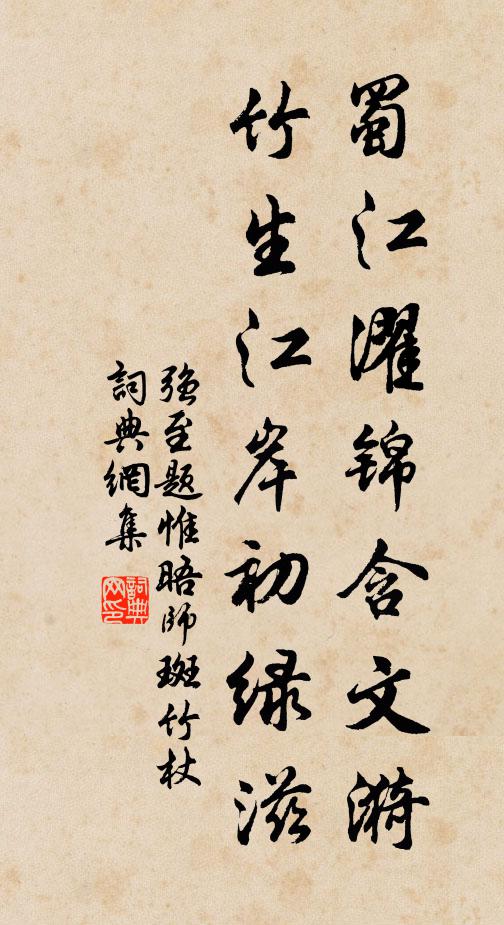 蜀江濯锦含文漪
竹生江岸初绿滋
强至题惟晤师斑竹杖
詞典網集
詞典网印